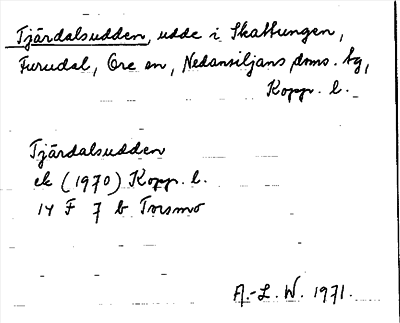 Tjärdalsudden, udde i Skattungen,
Furudal, Ore sn, Nedansiljans doms. tg,
Kopp. l.
Tjärdalsudden
ek (1970) Kopp. l.
14 F 7 b Torsmo
A.-L. W. 1971.